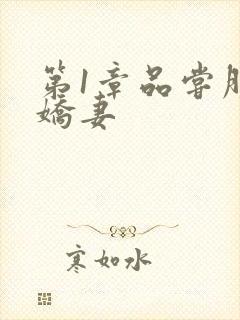 第1章品尝
娇妻
寒如水